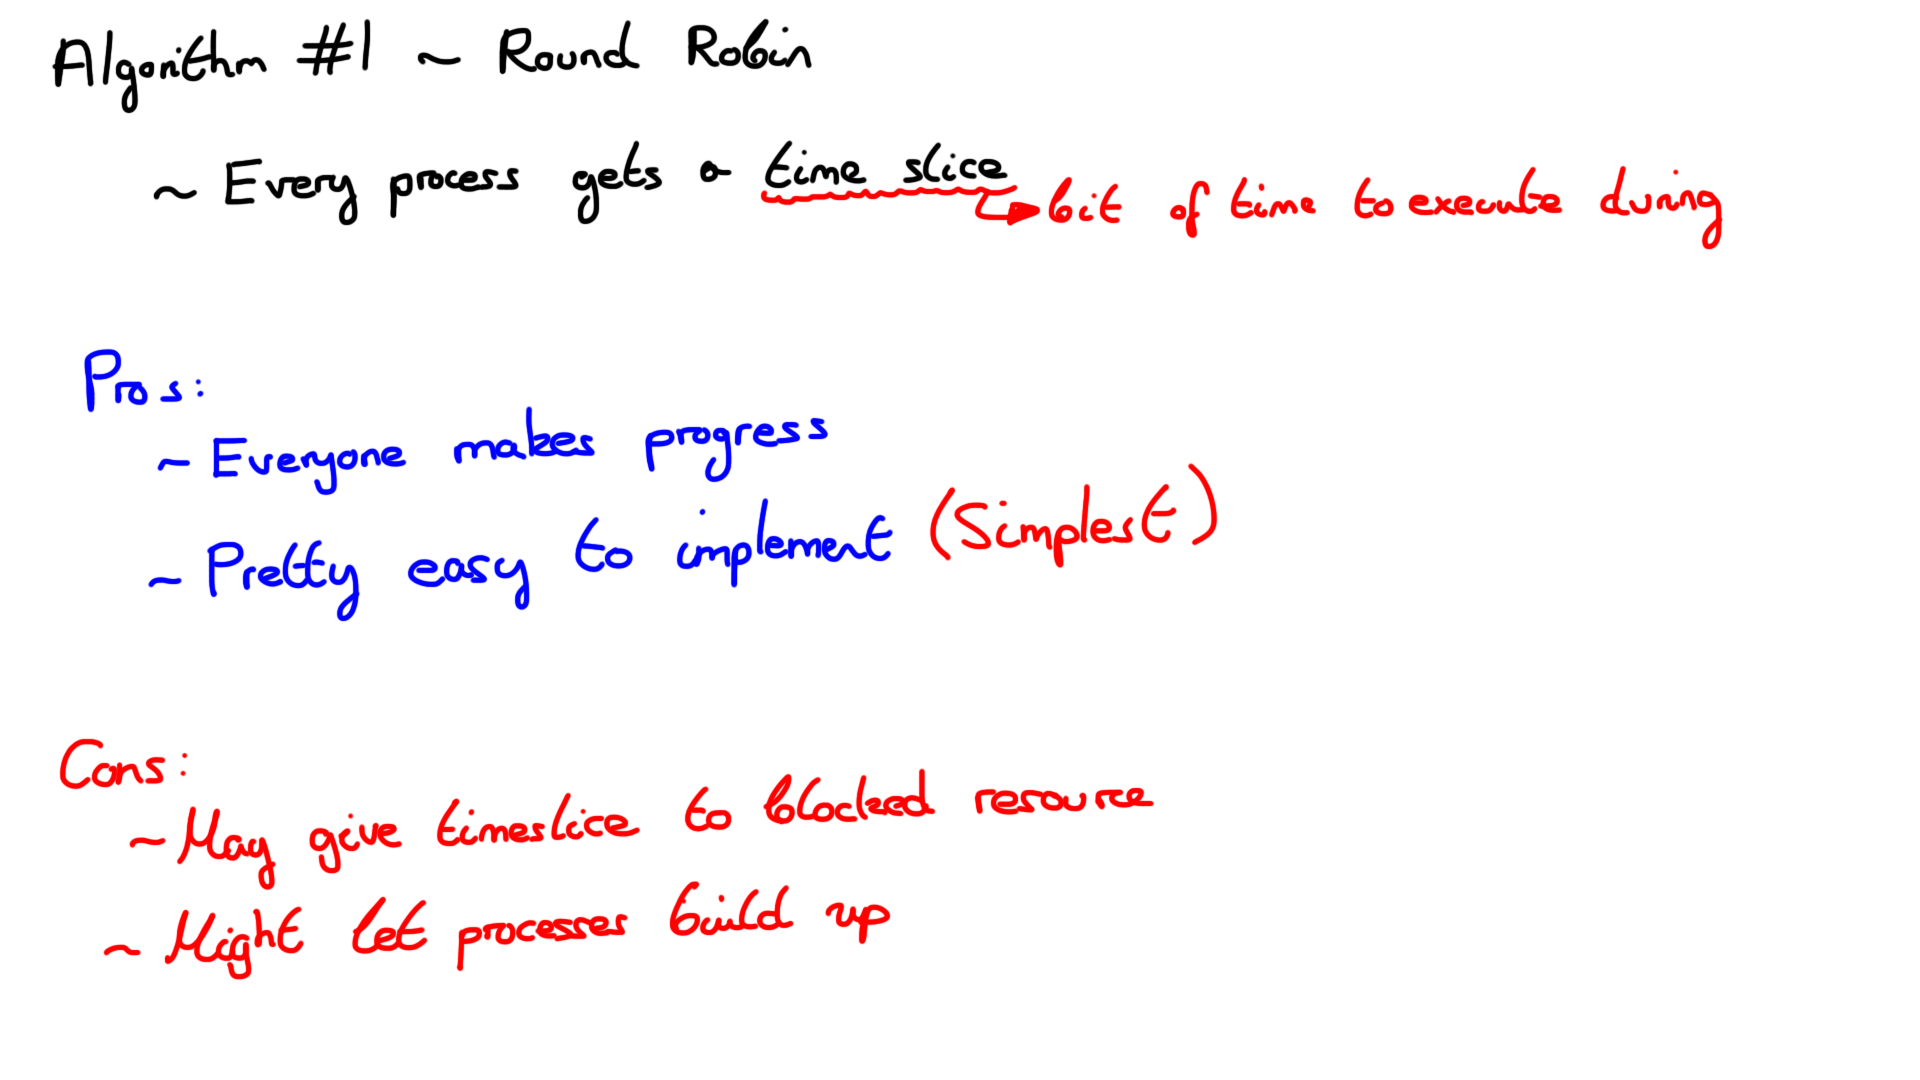 Algorithm #1 ~ Round Robin
~ Every process gets a time slice
bit of time to execute during
Pros:
~ Everyone makes progress
~ Pretty easy to implement (Simplest)
Cons:
~ May give timeslice to blocked resource
~ Might let processes build up